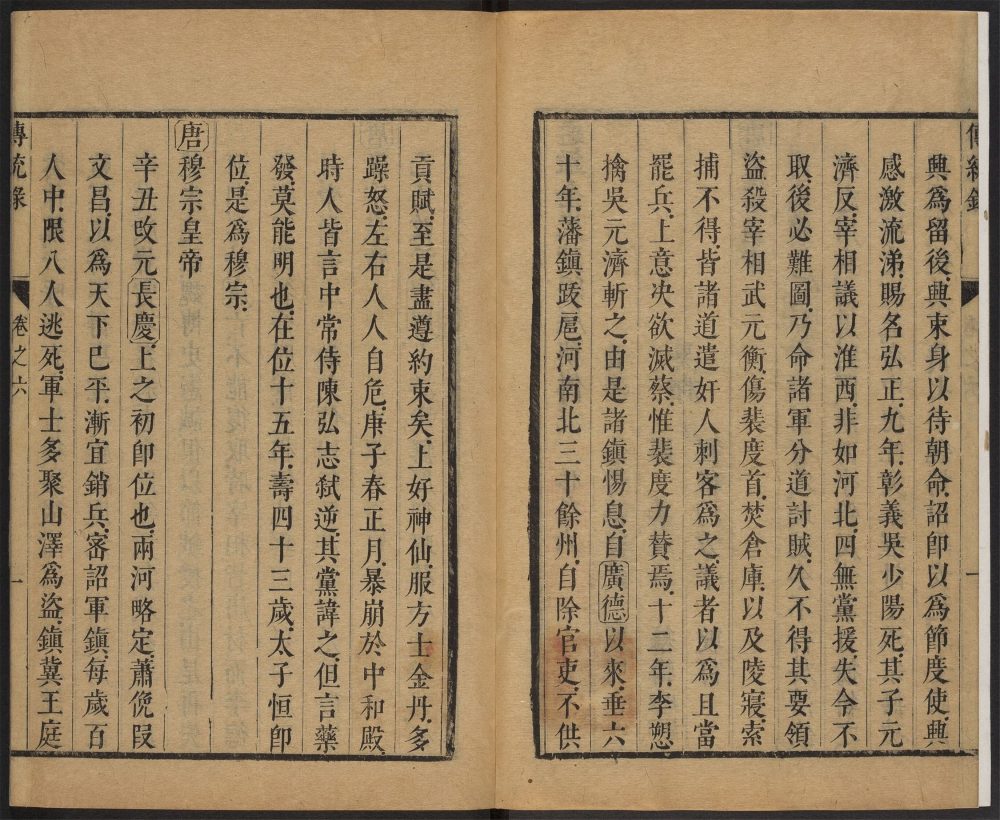 興為留後。興束身以待朝命。詔卽以為節度使。興
感激流涕。賜名弘正。九年。彰義吳少陽死。其子元
濟反。宰相議以淮西。非如河北。四無黨援。失今不
取。後必難圖。乃命諸軍分道討賊。久不得其要領
盜殺宰相武元衡。傷裴度首。焚倉庫。以及陵寢。索
捕不得。皆諸道遣奸人刺客為之。議者以為且當
罷兵。上意决欲滅蔡。惟裴度力贊焉。十二年。李愬
擒吳元濟斬之。由是諸鎮惕息。自廣德以來。垂六
十年。藩鎮跋扈。河南北三十餘州。自除官吏。不供
貢賦。至是盡遵約束矣。上好神仙。服方士金丹。多
躁怒。左右人人自危。庚子春正月。暴崩於中和殿。
時人皆言中常侍陳弘志弒逆。其黨諱之。但言藥
發。莫能明也。在位十五年。壽四十三歲。太子恒卽
位。是為穆宗。
唐穆宗皇帝
辛丑改元長慶。上之初卽位也。兩河略定。蕭俛段
文昌。以為天下已平。漸宜銷兵。密詔軍鎮。每歲百
人中。限八人逃死。軍士多聚山澤為盜。鎮冀王庭
傳統錄
卷之六
一